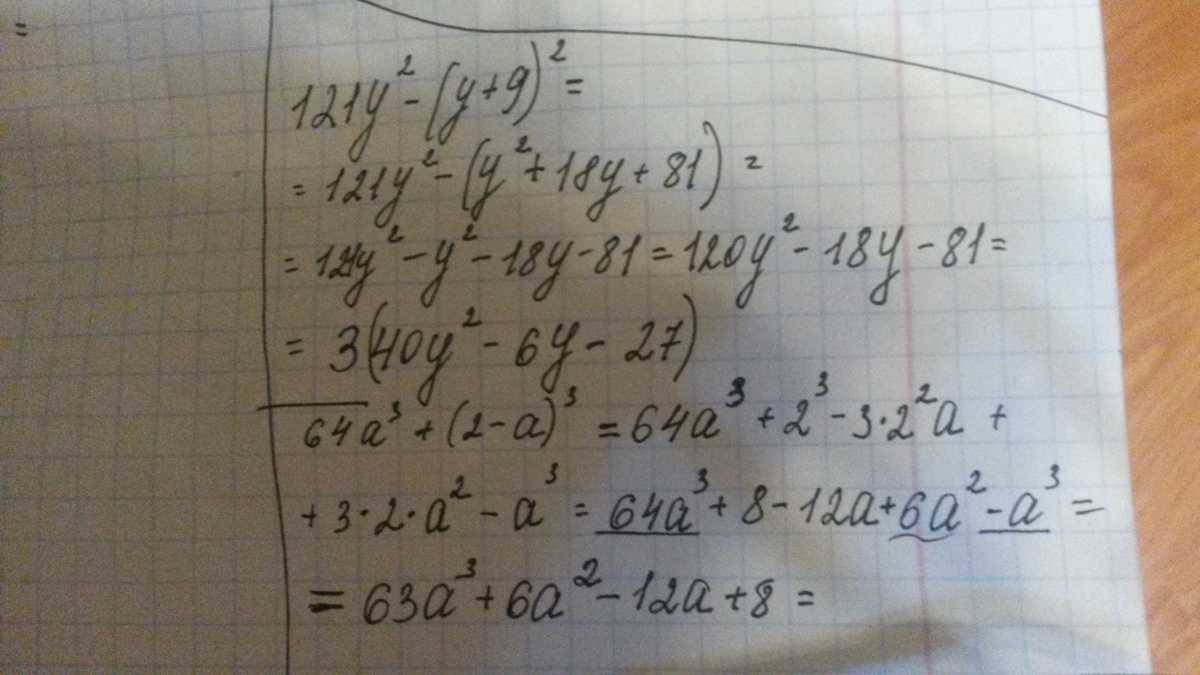 =
121y² - (y+9)² =
= 121y² - (y² + 18y + 81) =
= 121y² - y² - 18y - 81 = 120y² - 18y - 81 =
= 3(40y² - 6y - 27)
64a³ + (2-a)³ = 64a³ + 2³ - 3·2²a +
+ 3·2·a² - a³ = 64a³ + 8 - 12a + 6a² - a³ =
= 63a³ + 6a² - 12a + 8 =